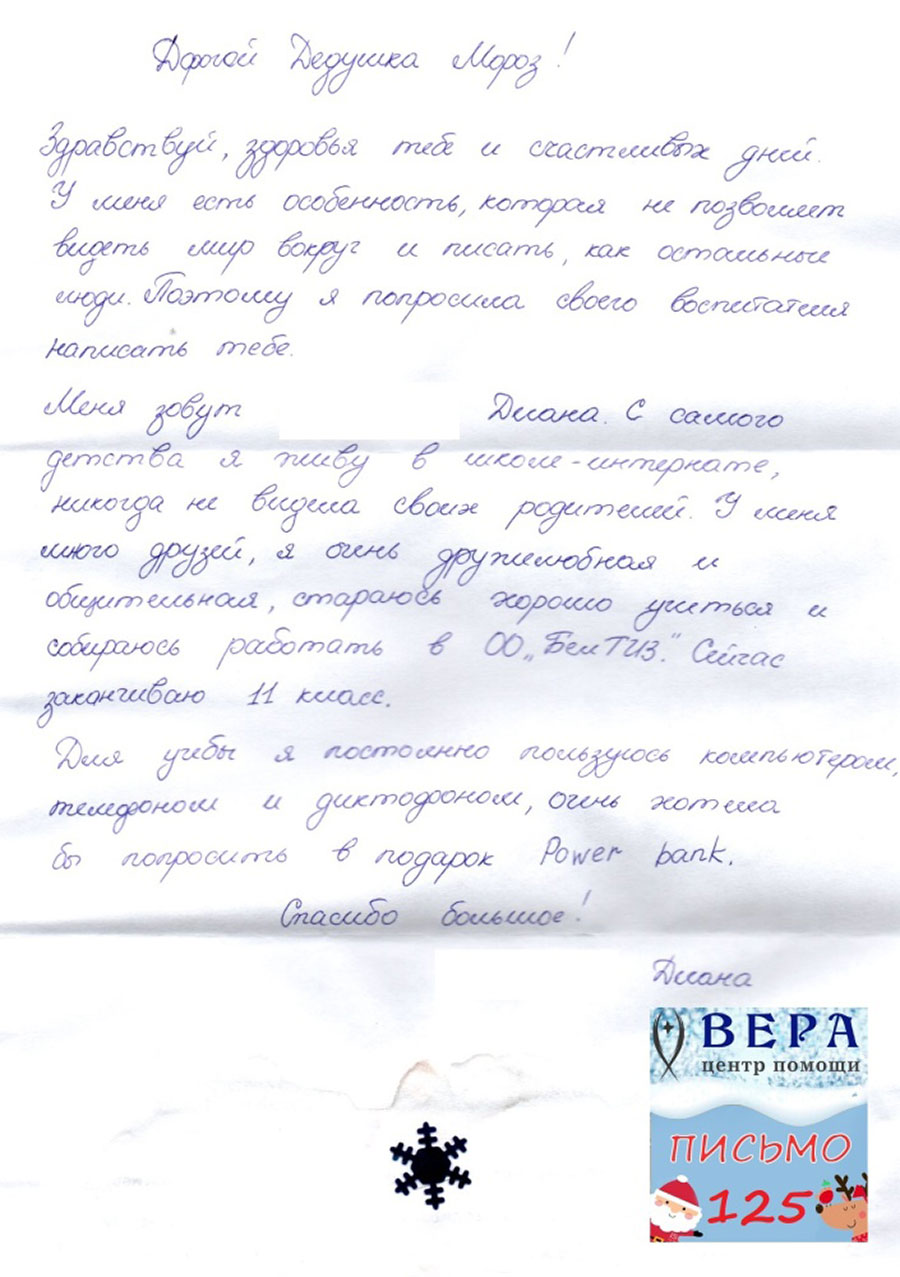 Дорогой Дедушка Мороз!
Здравствуй, здоровья тебе и счастливых дней.
У меня есть особенность, которая не позволяет
видеть мир вокруг и писать, как остальные
люди. Поэтому я попросила своего воспитателя
написать тебе.
Меня зовут Диана. С самого
детства я живу в школе-интернате,
никогда не видела своих родителей. У меня
много друзей, я очень дружелюбная и
общительная, стараюсь хорошо учиться и
собираюсь работать в ОО „БелТИЗ." Сейчас
заканчиваю 11 класс.
Для учёбы я постоянно пользуюсь компьютером,
телефоном и диктофоном, очень хотела
бы попросить в подарок Power bank.
Спасибо большое!
Диана
ВЕРА
центр помощи
ПИСЬМО
125